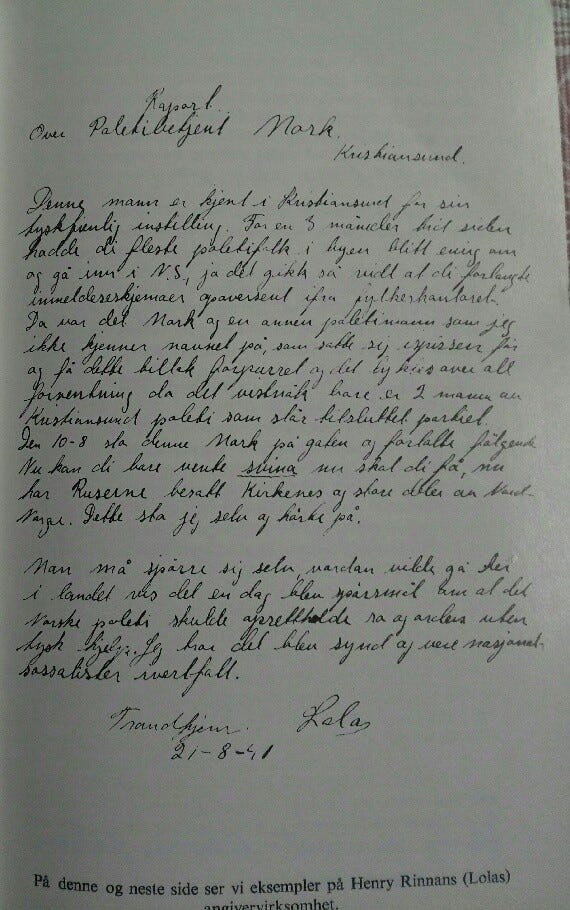 Raport.
Over Paletibetjent Mork.
Kristiansund.
Denne mann er kjent i Kristiansund for sin
tyskfienlig instilling. For en 3 måneder tid siden
hadde di fleste paletifalk i byen blitt enig om
og gå inn i N.S, ja det gikk så vidt at di forlangte
inmeldeserskjemaer aparersent ifra fylkerkantaret.
Da var det Mork og en annen paletimann som jeg
ikke kjenner navnet på, som satte sig i spissen for
og få dette tiltak forpurret og det lykkes over all
forventning da det vistnåk bare er 2 mann av
Kristiansund paleti som står titsluttet partiet.
Den 10-8 sto denne Mork på gaten og fortalte følgende
Nu kan di bare vente svina nu skal di få, nu
har Ruserne besatt Kirkenes og store deler av Nord-
Norge. Dette sto jeg selv og hørte på.
Man må spørre sig selv, vordan vilde gå her
i landet vis det en dag blev spørsmål om at det
Norske paleti skulde aprettholde ro og orden uten
tysk hjelp. Jeg tror det blev synd og vere nasjonal-
sossalister ivertfall.
Trandhjem. Lola
21-8-41
På denne og neste side ser vi eksempler på Henry Rinnans (Lolas)
angivervirksomhet.